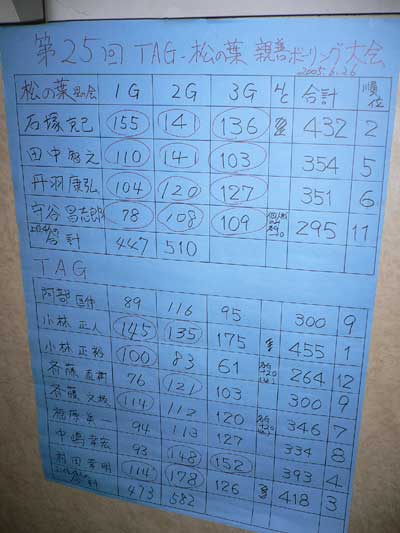 第25回 TAG・松の葉 親善ボーリング大会
2005.6.26
松の葉 1G 2G 3G HC 合計 順位
石塚克己 155 141 136 432 2
田中 之 110 141 103 354 5
丹羽康弘 104 120 127 351 6
守谷昌志郎 78 108 109 295 11
合計 447 510
TAG
阿部 89 116 95 300 9
小林 正人 145 135 175 455 1
小林 正裕 100 83 61 264 12
斉藤 76 121 103 300 9
斉藤 114 112 120 346 7
94 113 127 334 8
中嶋 93 148 152 393 4
114 178 126 418 3
合計 473 582